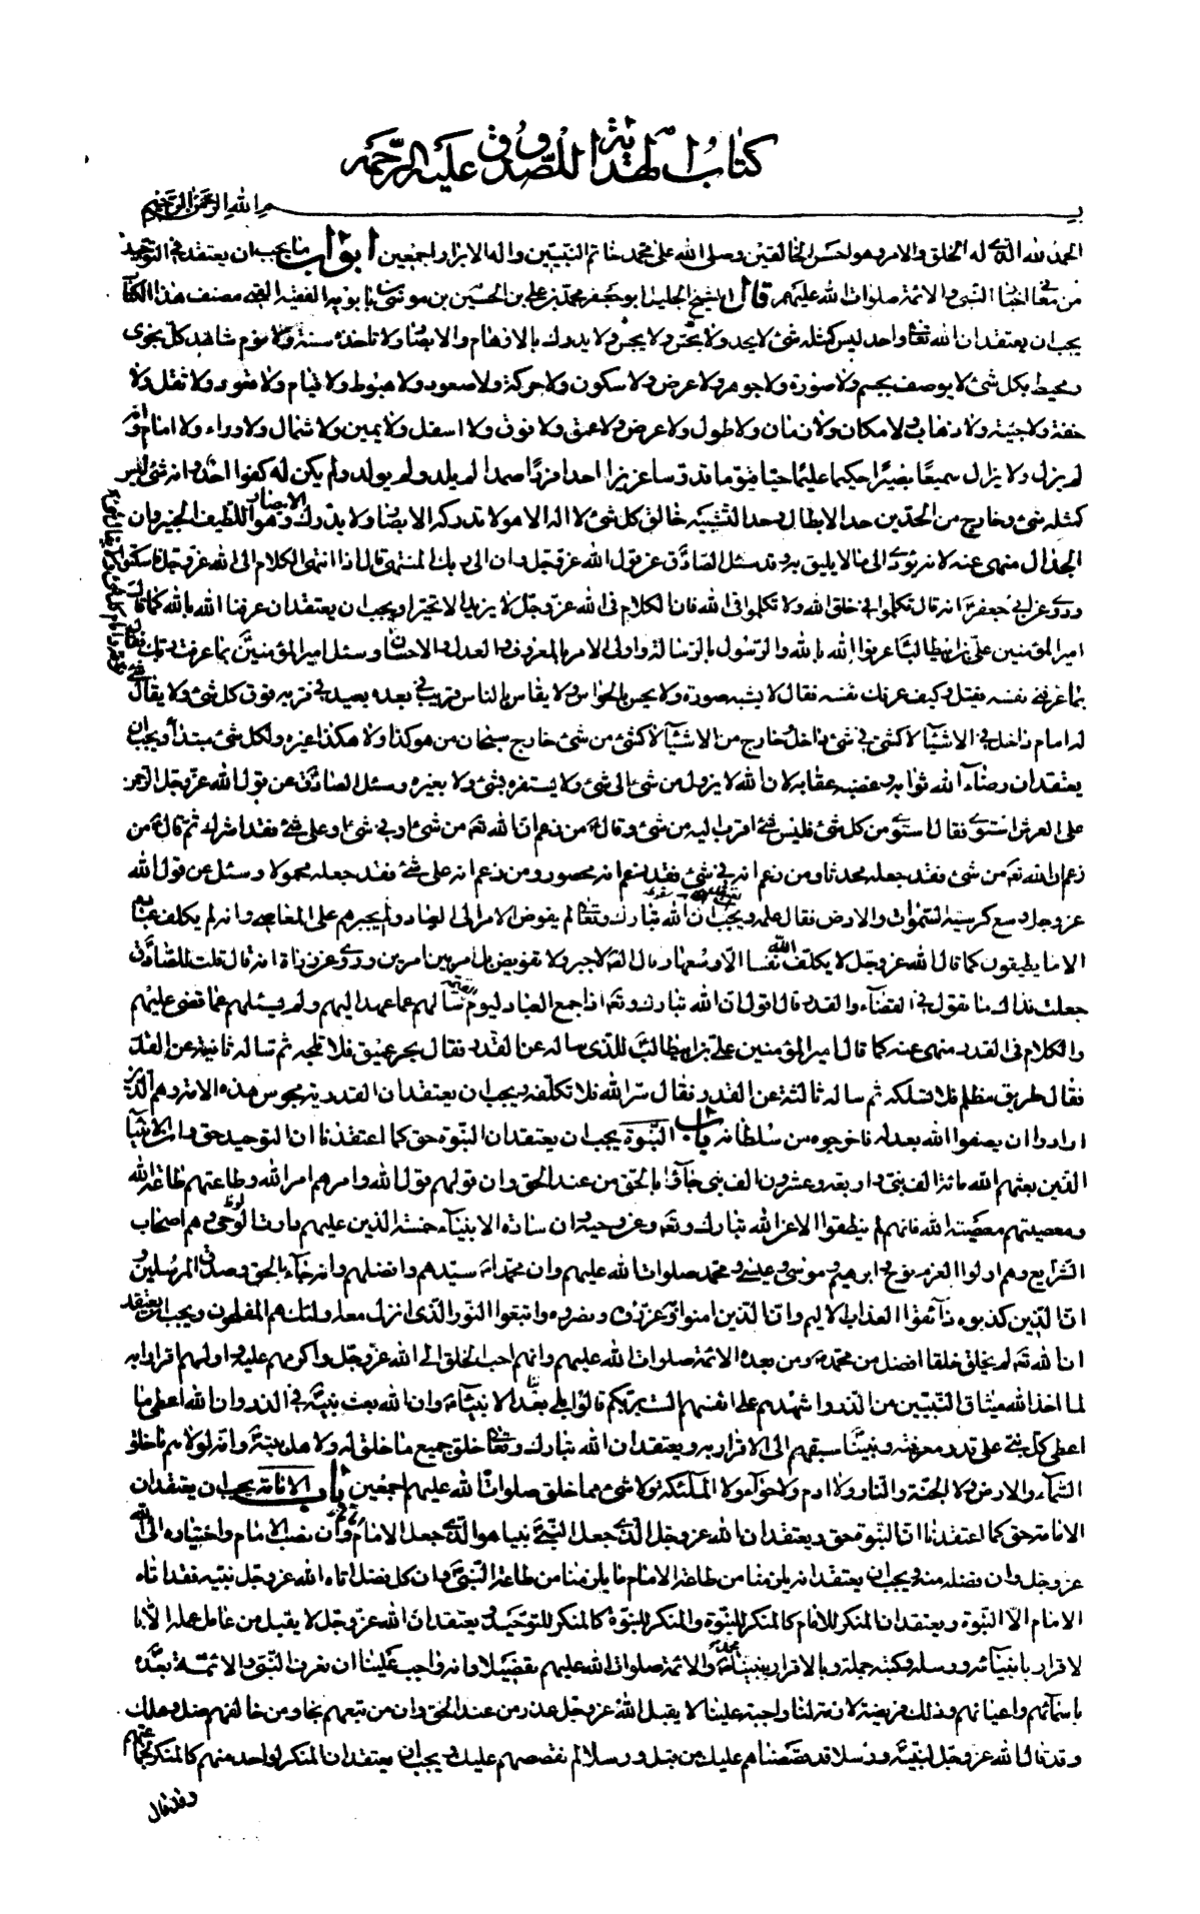 كتاب الهداية للصدوق عليه الرحمه
بسم الله الرحمن الرحيم
الحمد لله الذي له الخلق والامر وهو احسن الخالقين وصلى الله على محمد خاتم النبيين واله الابرار اجمعين ابواب ما يجب ان يعتقد في التوحيد
من معاني اخبار النبي والائمة صلوات الله عليهم قال الشيخ الجليل ابو جعفر محمد بن علي بن الحسين بن موسى بن بابويه الفقيه القمي مصنف هذا الكتاب
يجب ان يعتقد ان الله تعالى واحد ليس كمثله شئ لا يحد ولا يحس ولا يجس ولا يدرك بالاوهام والابصار ولا تاخذه سنة ولا نوم شاهد كل نجوى
ومحيط بكل شئ لا يوصف بجسم ولا صورة ولا جوهر ولا عرض ولا سكون ولا حركة ولا صعود ولا هبوط ولا قيام ولا قعود ولا ثقل ولا
خفة ولا جيئة ولا ذهاب ولا مكان ولا زمان ولا طول ولا عرض ولا عمق ولا فوق ولا اسفل ولا يمين ولا شمال ولا وراء ولا امام وانه
لم يزل ولا يزال سميعا بصيرا حكيما عليما حيا قيوما قدوسا عزيزا احدا فردا صمدا لم يلد ولم يولد ولم يكن له كفوا احد وانه شئ ليس
كمثله شئ وخارج من الحدين حد الابطال وحد التشبيه خالق كل شئ لا اله الا هو لا تدركه الابصار وهو يدرك الابصار وهو اللطيف الخبير وان
الجدال منهى عنه لانه يؤدي الى ما لا يليق به وقد سئل الصادق عن قول الله عز وجل وان الى ربك المنتهى قال اذا انتهى الكلام الى الله عز وجل فاسكتوا
وروى عن ابي جعفر انه قال تكلموا في خلق الله ولا تكلموا في الله فان الكلام في الله عز وجل لا يزيد الا تحيرا ويجب ان يعتقد ان عرفنا الله بالله كما قال
امير المؤمنين علي بن ابيطالب اعرفوا الله بالله والرسول بالرسالة واولى الامر بالمعروف والعدل والاحسان وسئل امير المؤمنين بما عرفت ربك فقال
بما عرفني نفسه فقيل وكيف عرفك نفسه فقال لا يشبه صورة ولا يحس بالحواس ولا يقاس بالناس قريب في بعده بعيد في قربه فوق كل شئ ولا يقال
له امام داخل في الاشياء لا كشئ في شئ داخل وخارج من الاشياء لا كشئ من شئ خارج سبحان من هو كذا ولا هكذا غيره ولكل شئ مبتدأ ويجب ان
يعتقد ان رضاء الله ثوابه وغضبه عقابه لان الله لا يزول من شئ الى شئ ولا يستفزه شئ ولا يغيره وسئل الصادق عن قول الله عز وجل الرحمن
على العرش استوى فقال استوى من كل شئ فليس شئ اقرب اليه من شئ وقال من زعم ان الله تعم من شئ او في شئ او على شئ فقد اشرك ثم قال من
زعم ان الله تعم من شئ فقد جعله محدثا ومن زعم انه في شئ فقد زعم انه محصور ومن زعم انه على شئ فقد جعله محمولا وسئل عن قول الله
عز وجل وسع كرسيه السموات والارض فقال علمه ويجب ان يعتقد ان الله تبارك وتعالى لم يفوض الامر الى العباد ولم يجبرهم على المعاصي وانه لم يكلف عباده
الا ما يطيقون كما قال الله عز وجل لا يكلف الله نفسا الا وسعها وقال الصادق لا جبر ولا تفويض بل امر بين امرين وروى عن زرارة انه قال قلت للصادق
جعلت فداك ما تقول في القضاء والقدر قال اقول ان الله تبارك وتعم اذا جمع العباد ليوم القيمة سألهم عما عهد اليهم ولم يسئلهم عما قضى عليهم
والكلام في القدر منهى عنه كما قال امير المؤمنين علي بن ابيطالب للذي ساله عن القدر فقال بحر عميق فلا تلجه ثم ساله ثانية عن القدر
فقال طريق مظلم فلا تسلكه ثم ساله ثالثة عن القدر فقال سر الله فلا تكلفه ويجب ان يعتقد ان القدرية مجوس هذه الامة وهم الذين
ارادوا ان يصفوا الله بعدله فاخرجوه من سلطانه باب النبوة يجب ان يعتقد ان النبوة حق كما اعتقدنا ان التوحيد حق وان الانبياء
الذين بعثهم الله مائة الف نبي واربعة وعشرون الف نبي جاؤا بالحق من عند الحق وان قولهم قول الله وامرهم امر الله وطاعتهم طاعة الله
ومعصيتهم معصية الله فانهم لم ينطقوا الا عن الله تبارك وتعم وعن وحيه وان سادة الانبياء خمسة الذين عليهم دارت الرحى وهم اصحاب
الشرايع وهم اولوا العزم نوح وابرهيم وموسى وعيسى ومحمد صلوات الله عليهم وان محمدا سيدهم وافضلهم وانه جاء بالحق وصدق المرسلين و
ان الذين كذبوه ذائقوا العذاب الاليم وان الذين امنوا به وعزروه ونصروه واتبعوا النور الذي انزل معه اولئك هم المفلحون ويجب ان يعتقد
ان الله تعم لم يخلق خلقا افضل من محمد ومن بعده الائمة صلوات الله عليهم وانهم احب الخلق الى الله عز وجل واكرمهم عليه واولهم اقرارا به
لما اخذ الله ميثاق النبيين من الذر واشهدهم على انفسهم الست بربكم قالوا بلى بعد الانبياء وان الله بعث نبيه في الذر وان الله اعطى ما
اعطى كل نبي على قدر معرفته ونبينا سبقهم الى الاقرار به ويعتقد ان الله تبارك وتعالى خلق جميع ما خلق له ولاهل بيته وانه لولاهم ما خلق
السماء والارض ولا الجنة والنار ولا ادم ولا حواء ولا الملئكة ولا شئ مما خلق صلوات الله عليهم اجمعين باب الامامة يجب ان يعتقد ان
الامامة حق كما اعتقدنا ان النبوة حق ويعتقد ان الله عز وجل الذي جعل النبي نبيا هو الذي جعل الامام وان نصب الامام واختياره الى الله
عز وجل وان فضله منه ويجب ان يعتقد انه يلزمنا من طاعة الامام ما يلزمنا من طاعة النبي وان كل فضل اتاه الله عز وجل نبيه فقد اتاه
الامام الا النبوة ويعتقد ان المنكر للامام كالمنكر للنبوة والمنكر للنبوة كالمنكر للتوحيد ويعتقد ان الله عز وجل لا يقبل من عامل عمله الا با
لاقرار بانبيائه ورسله وكتبه جملة وبالاقرار بنبينا محمد والائمة صلوات الله عليهم تفصيلا وانه واجب علينا ان نعرف النبي والائمة بعده
باسمائهم واعيانهم وذلك فريضة لازمة لنا واجبة علينا لا يقبل الله عز وجل عذر من عند الحق وان من تبعهم نجا ومن خالفهم ضل وهلك
وقد قال الله عز وجل لنبيه ورسلا قد قصصناهم عليك من قبل ورسلا لم نقصصهم عليك ويجب ان يعتقد ان المنكر لواحد منهم كالمنكر لجماعتهم
وقد قال